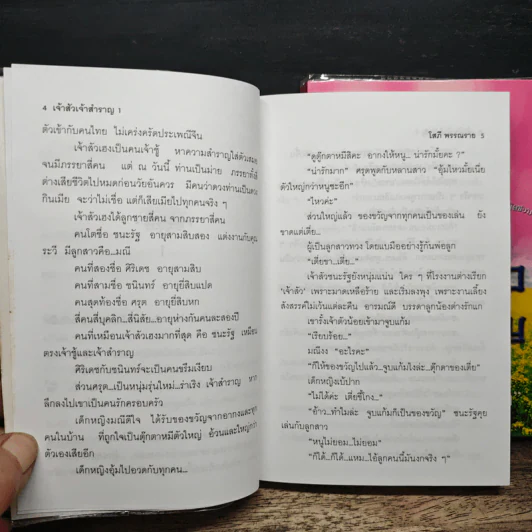 4 เจ้าสัวเจ้าสำราญ 1
ตัวเข้ากับคนไทย ไม่เคร่งครัดประเพณีจีน
เจ้าสัวเฮงเป็นคนเจ้าชู้ หาความสำราญใส่ตัวเสมอ
จนมีภรรยาสี่คน แต่ ณ วันนี้ ท่านเป็นม่าย ภรรยาทั้งสี่
ต่างเสียชีวิตไปหมดก่อนวัยอันควร มีคนว่าดวงท่านเป็นดวง
กินเมีย จะว่าไม่เชื่อ แต่ก็เสียเมียไปทุกคนจริง ๆ
เจ้าสัวเฮงได้ลูกชายสี่คน จากภรรยาสี่คน
คนโตชื่อ ชนะรัฐ อายุสามสิบสอง แต่งงานกับคุณ
ระวี มีลูกสาวคือ...มณี
คนที่สองชื่อ ศิริเดช อายุสามสิบ
คนที่สามชื่อ ชนินทร์ อายุยี่สิบแปด
คนสุดท้องชื่อ ครุต อายุยี่สิบหก
สี่คนสี่บุคลิก...สี่นิสัย...อายุห่างกันคนละสองปี
คนที่เหมือนเจ้าสัวเฮงมากที่สุด คือ ชนะรัฐ เหมือน
ตรงเจ้าชู้และเจ้าสำราญ
ศิริเดชกับชนินทร์จะเป็นคนขรึมเงียบ
ส่วนครุต...เป็นหนุ่มรุ่นใหม่...ร่าเริง เจ้าสำราญ หาก
ลึกลงไปเขาเป็นคนรักครอบครัว
เด็กหญิงมณีดีใจ ได้รับของขวัญจากอากงและทุก
คนในบ้าน ที่ถูกใจเป็นตุ๊กตาหมีตัวใหญ่ อ้วนและใหญ่กว่า
ตัวเองเสียอีก
เด็กหญิงอุ้มไปอวดกับทุกคน...
โสภี พรรณราย 5
“ดูตุ๊กตาหมีสิคะ อากงให้หนู... น่ารักมั้ยคะ ?”
“น่ารักมาก” ครุตพูดกับหลานสาว “อุ้มไหวมั้ยเนี่ย
ตัวใหญ่กว่าหนูซะอีก”
“ไหวค่ะ”
ส่วนใหญ่แล้ว ของขวัญจากทุกคนเป็นของเล่น ยัง
ขาดแต่เตี่ย...
ผู้เป็นลูกสาวทวง โดยแบมืออย่างรู้กันพ่อลูก
“เตี่ยขา...เตี่ย...”
เจ้าสัวชนะรัฐยังหนุ่มแน่น ใคร ๆ ที่โรงงานต่างเรียก
‘เจ้าสัว’ เพราะมาดเหลือร้าย และเริ่มลงพุง เพราะงานเลี้ยง
สังสรรค์ไม่เว้นแต่ละคืน อารมณ์ดี บรรดาลูกน้องต่างรักแก
เขารั้งเจ้าตัวน้อยเข้ามาจูบแก้ม
“เรียบร้อย...”
มณีงง “อะไรคะ”
“ก็ให้ของขวัญไปแล้ว...จูบแก้มไงล่ะ...ตุ๊กตาของเตี่ย”
เด็กหญิงเบ้ปาก
“ไม่ได้ค่ะ เตี่ยขี้โกง...”
“อ้าว...ทำไมล่ะ จูบแก้มก็เป็นของขวัญ” ชนะรัฐคุย
เล่นกับลูกสาว
“หนูไม่ยอม...ไม่ยอม”
“ก็ได้...ก็ได้...แหม...ไอ้ลูกคนนี้มันงกจริง ๆ”